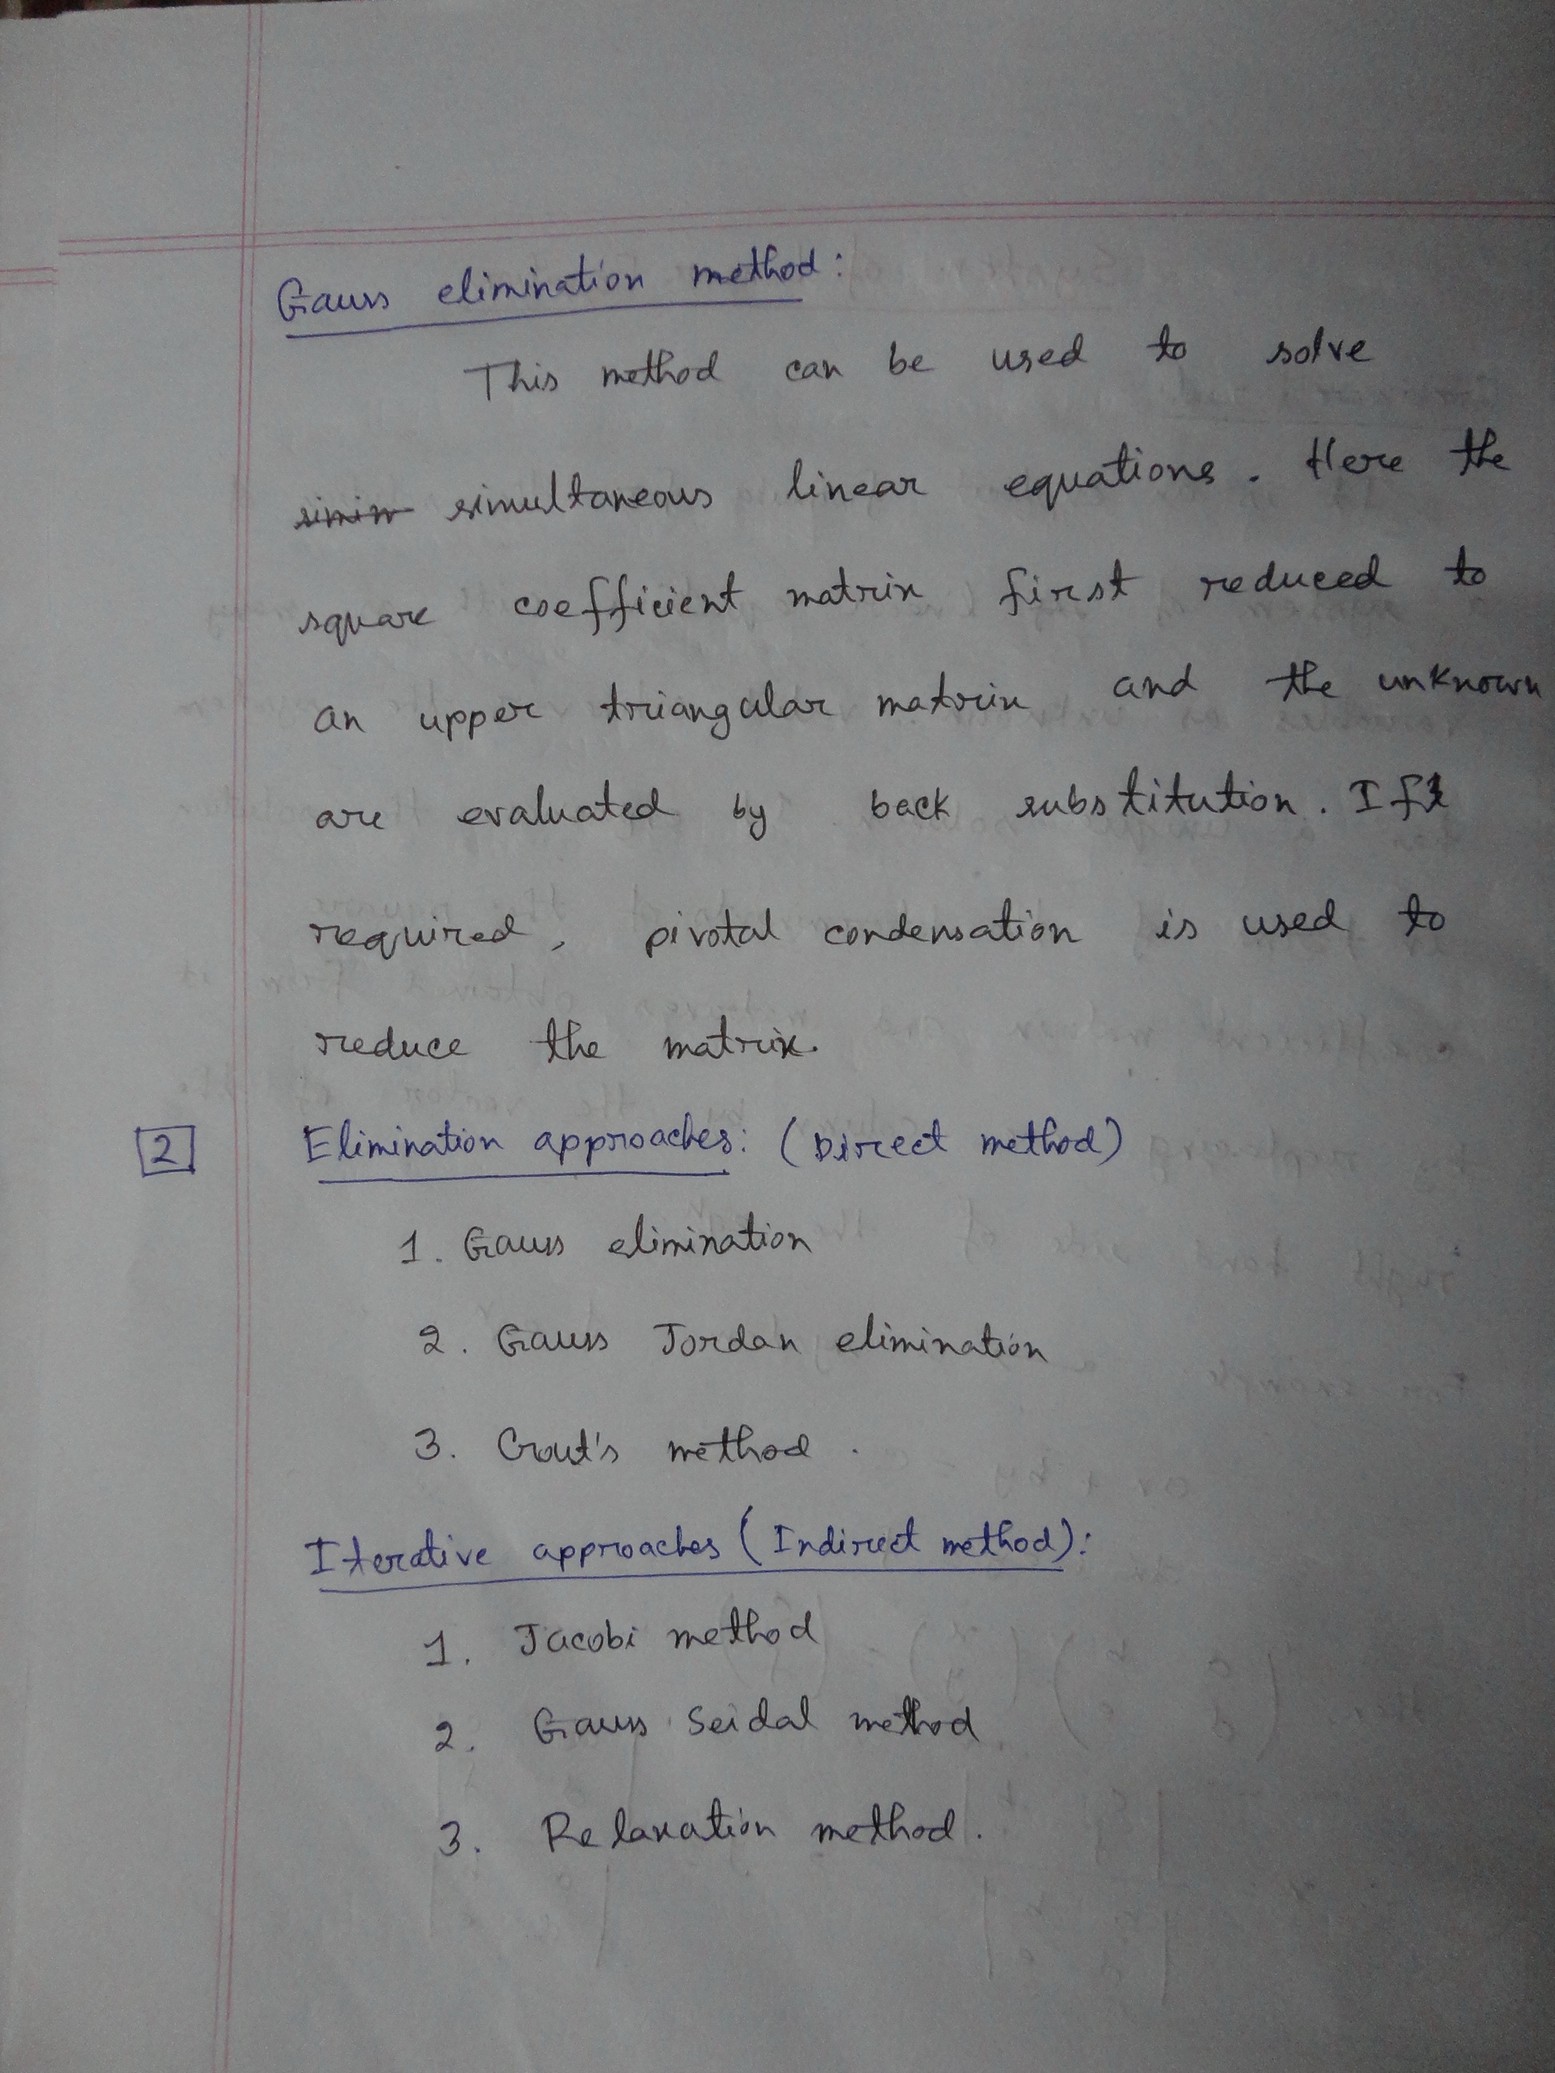 Gauss elimination method:
This method can be used to solve
simultaneous linear equations. Here the
square coefficient matrix first reduced to
an upper triangular matrix and the unknown
are evaluated by back substitution. If
required, pivotal condensation is used to
reduce the matrix.
2 Elimination approaches: (Direct method)
1. Gauss elimination
2. Gauss Jordan elimination
3. Crout's method.
Iterative approaches (Indirect method):
1. Jacobi method
2. Gauss Seidal method
3. Relaxation method.